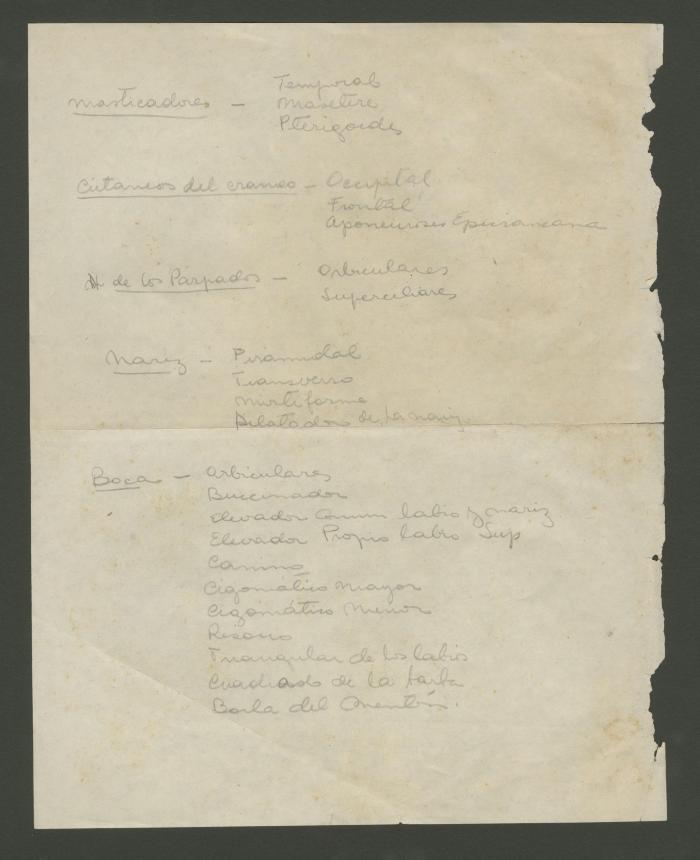 Masticadores — Temporal
Masetero
Pterigoides
Cutaneos del craneo — Occipital
Frontal
Aponeurosis Epicraneana
de los Parpados — Orbiculares
Superciliares
Nariz — Piramidal
Transverso
Mirtiforme
Dilatador de la nariz
Boca — Orbiculares
Buccinador
Elevador Comun labio y nariz
Elevador Propio labio Sup
Canino
Cigomático Mayor
Cigomático Menor
Risorio
Triangular de los labios
Cuadrado de la barba
Borla del Mentón.